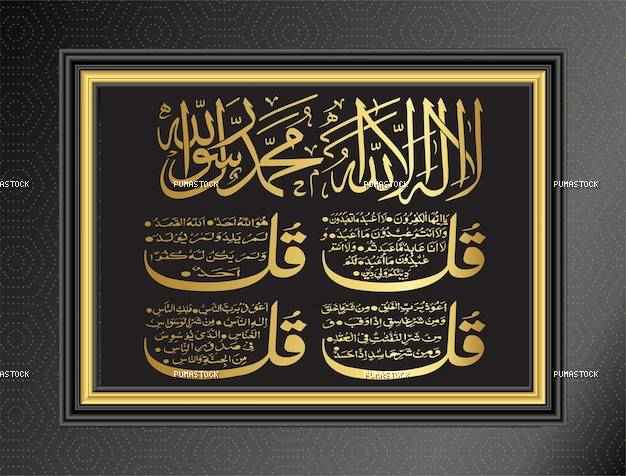 لا إله إلا الله محمد رسول الله
قل
يا أيها الكفرون • لا أعبد ما تعبدون •
ولا أنتم عبدون ما أعبد • و
لا أنا عابد ما عبدتم • ولا أنتم
عبدون ما أعبد • لكم
دينكم ولي دين •
قل
هو الله أحد • الله الصمد •
لم يلد ولم يولد •
ولم يكن له كفوا
أحد •
قل
أعوذ برب الفلق • من شر ما خلق
• ومن شر غاسق إذا وقب •
ومن شر النفثت في العقد •
ومن شر حاسد إذا حسد
قل
أعوذ برب الناس • ملك الناس •
إله الناس • من شر الوسواس
الخناس • الذي يوسوس
في صدور الناس •
من الجنة والناس •
PUMASTOCK
PUMASTOCK
PUMASTOCK
PUMASTOCK